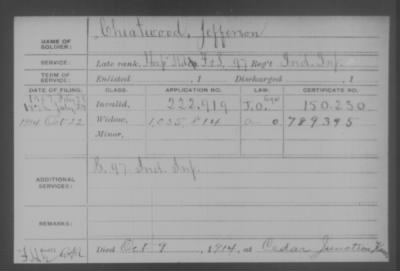 NAME OF SOLDIER: Cheatwood, Jefferson
SERVICE: Late rank, F&S, 97 Reg't Ind. Inf.
TERM OF SERVICE: Enlisted , 1 Discharged , 1
DATE OF FILING. CLASS. APPLICATION NO. LAW. CERTIFICATE NO.
Invalid, 222,919 150.230
1914 Oct 22 Widow, 1,035,814 789395
Minor,
ADDITIONAL SERVICES: B. 97 Ind. Inf.
REMARKS:
Died Oct 9, 1914, at Cedar Junction